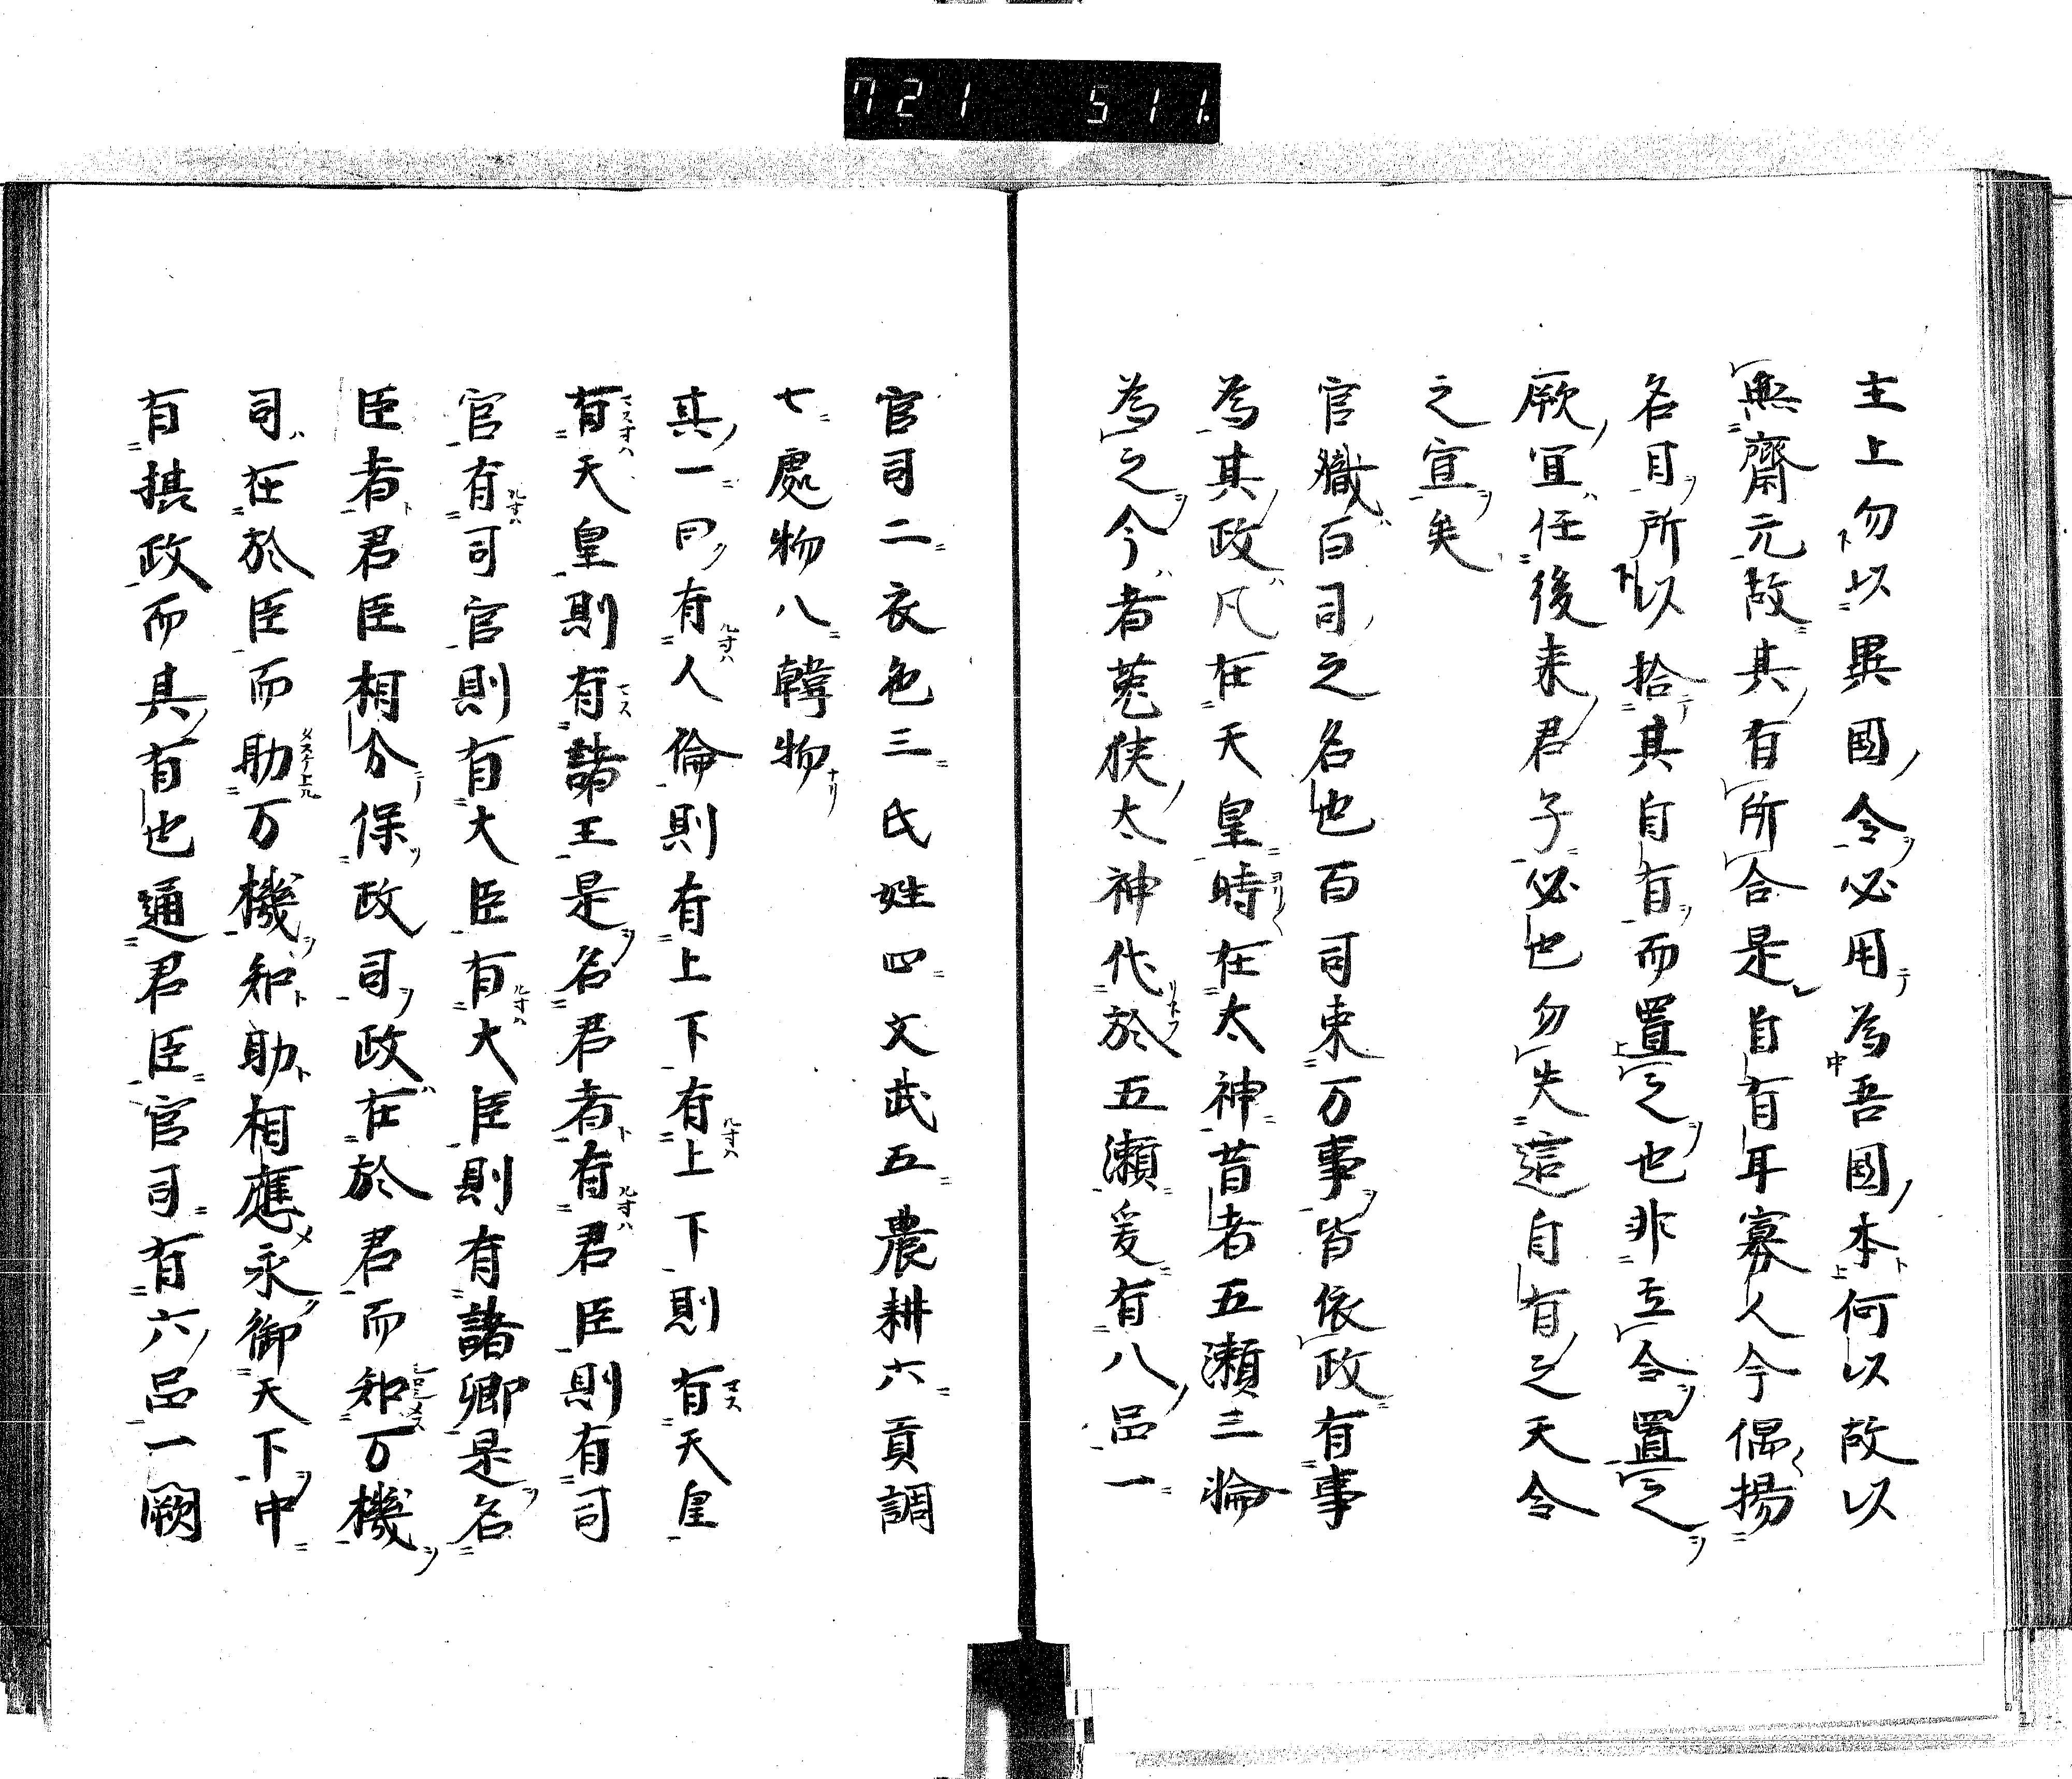 721 511.
主上勿以異國令必用為吾國本何以故以
無齋元故其有所合是自有耳寡人今偶揚
名目所以拾其自有而置之也非亙令置之
厥宜任後来君子必也勿失這自有之天令
之宣矣
官職百司之名也百司束万事皆依政有事
為其政凡在天皇時在太神昔者五瀬三輪
為之今者菟狭太神代於五瀬爰有八品一
官司二衣色三氏姓四文武五農耕六貢調
七處物八韓物
其一曰有人倫則有上下有上下則有天皇
有天皇則有諸王是名君者有君臣則有司
官有司官則有大臣有大臣則有諸卿是名
臣者君臣相分保政司政在於君而知万機
司在於臣而助万機知助相應永御天下中
有棋政而具有也通君臣官司有六品一闕